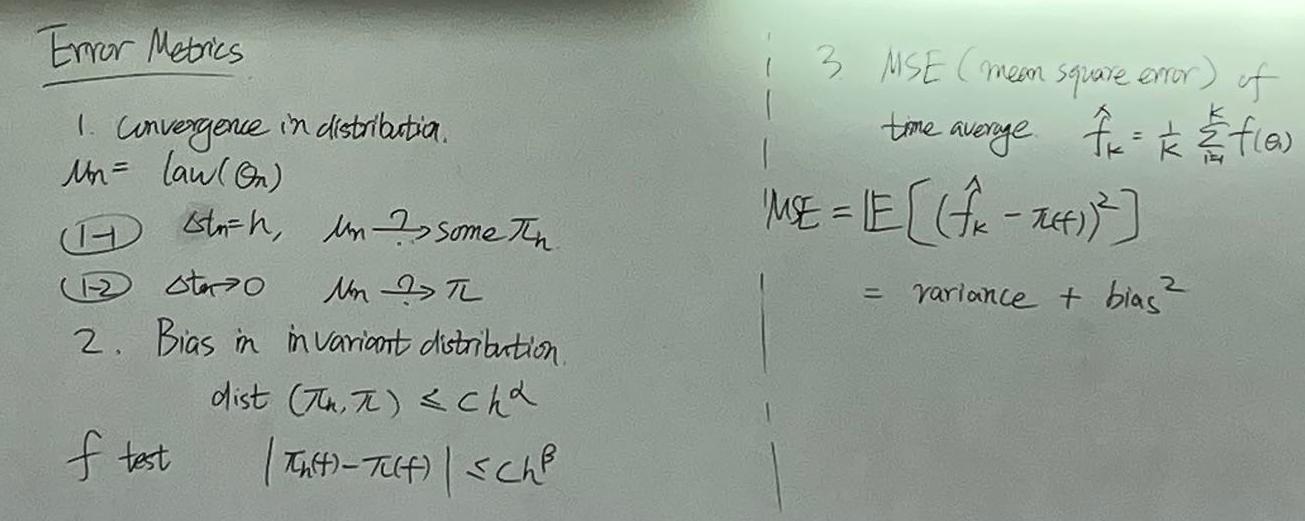 Error Metrics
1. Convergence in distribution.
μn = law(θn)
(1-1) Δtn=h, μn -?-> some πh
(1-2) Δtn→0 μn -?-> π
2. Bias in invariant distribution.
dist (πh, π) ≤ C h^α
f test |πh(f)-π(f)| ≤ C h^β
3. MSE (mean square error) of
time average. f̂_K = 1/K Σ_{i=1}^K f(θi)
MSE = 𝔼[(f̂_K - π(f))^2]
= variance + bias^2